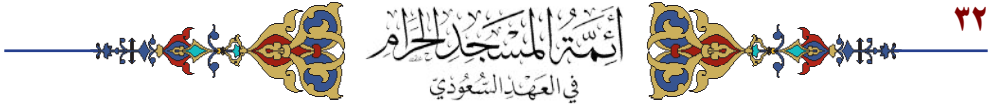 ٣٢
أَئِمَّةُ المَسْجِدِ الحَرَامِ
في العَهْدِ السُّعُوْدِيِّ